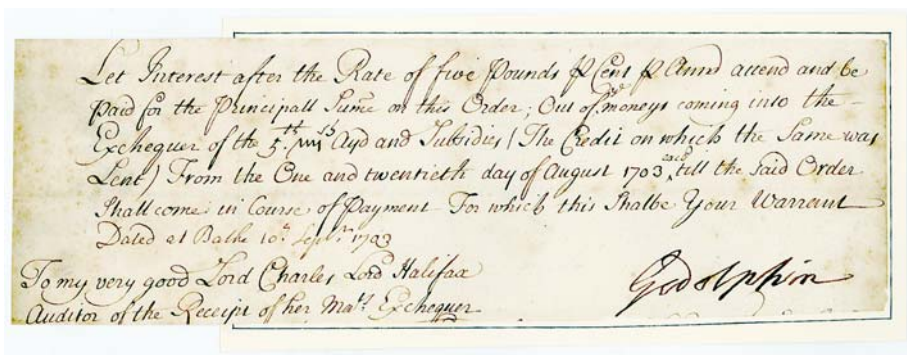 Let Interest after the Rate of five Pounds ⅌ Cent ⅌ Annũ attend and be
Paid for the Principall Sum̃e on this Order; Out of ye moneys coming into the
Exchequer of the 5th Ayd and Subsidies (The Credit on which the Same was
Lent) From the One and twentieth day of August 1703 till the Said Order
Shall come in Course of Payment For which this Shalbe Your Warrant
Dated at Bathe 10th Septr 1703
To my very good Lord Charles Lord Halifax
Auditor of the Receipt of her Mats Exchequer
Godolphin